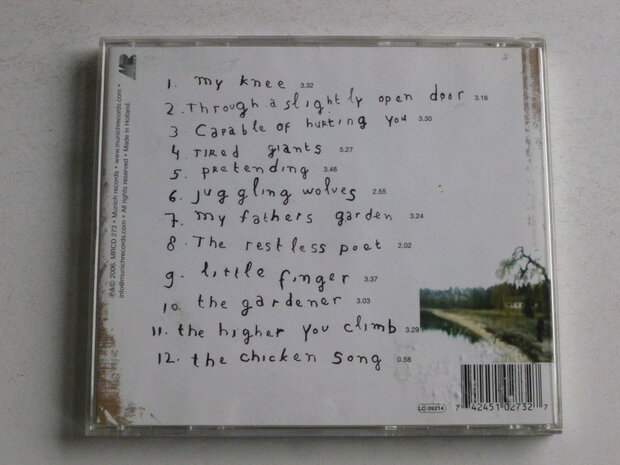 1. my knee 3.32
2. Through a slightly open door 3.16
3 Capable of hurting you 3.30
4 TIRED giants 5.27
5. pretending 3.48
6. juggling wolves 2.55
7. my fathers garden 3.24
8 The restless poet 2.02
9. little finger 3.37
10 the gardener 3.03
11. the higher you climb 3.29
12. the chicken song 0.58
℗&© 2006. MRCD 273 • Munich records • www.munichrecords.com •
info@munichrecords.com • All rights reserved • Made in Holland.
LC 09214
7 42451 02732 7